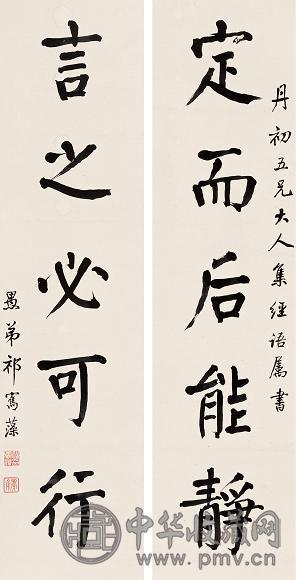 丹初五兄大人集經語屬書
定而后能靜
言之必可行
愚弟祁寯藻
中华收藏网
www.pmv.cn